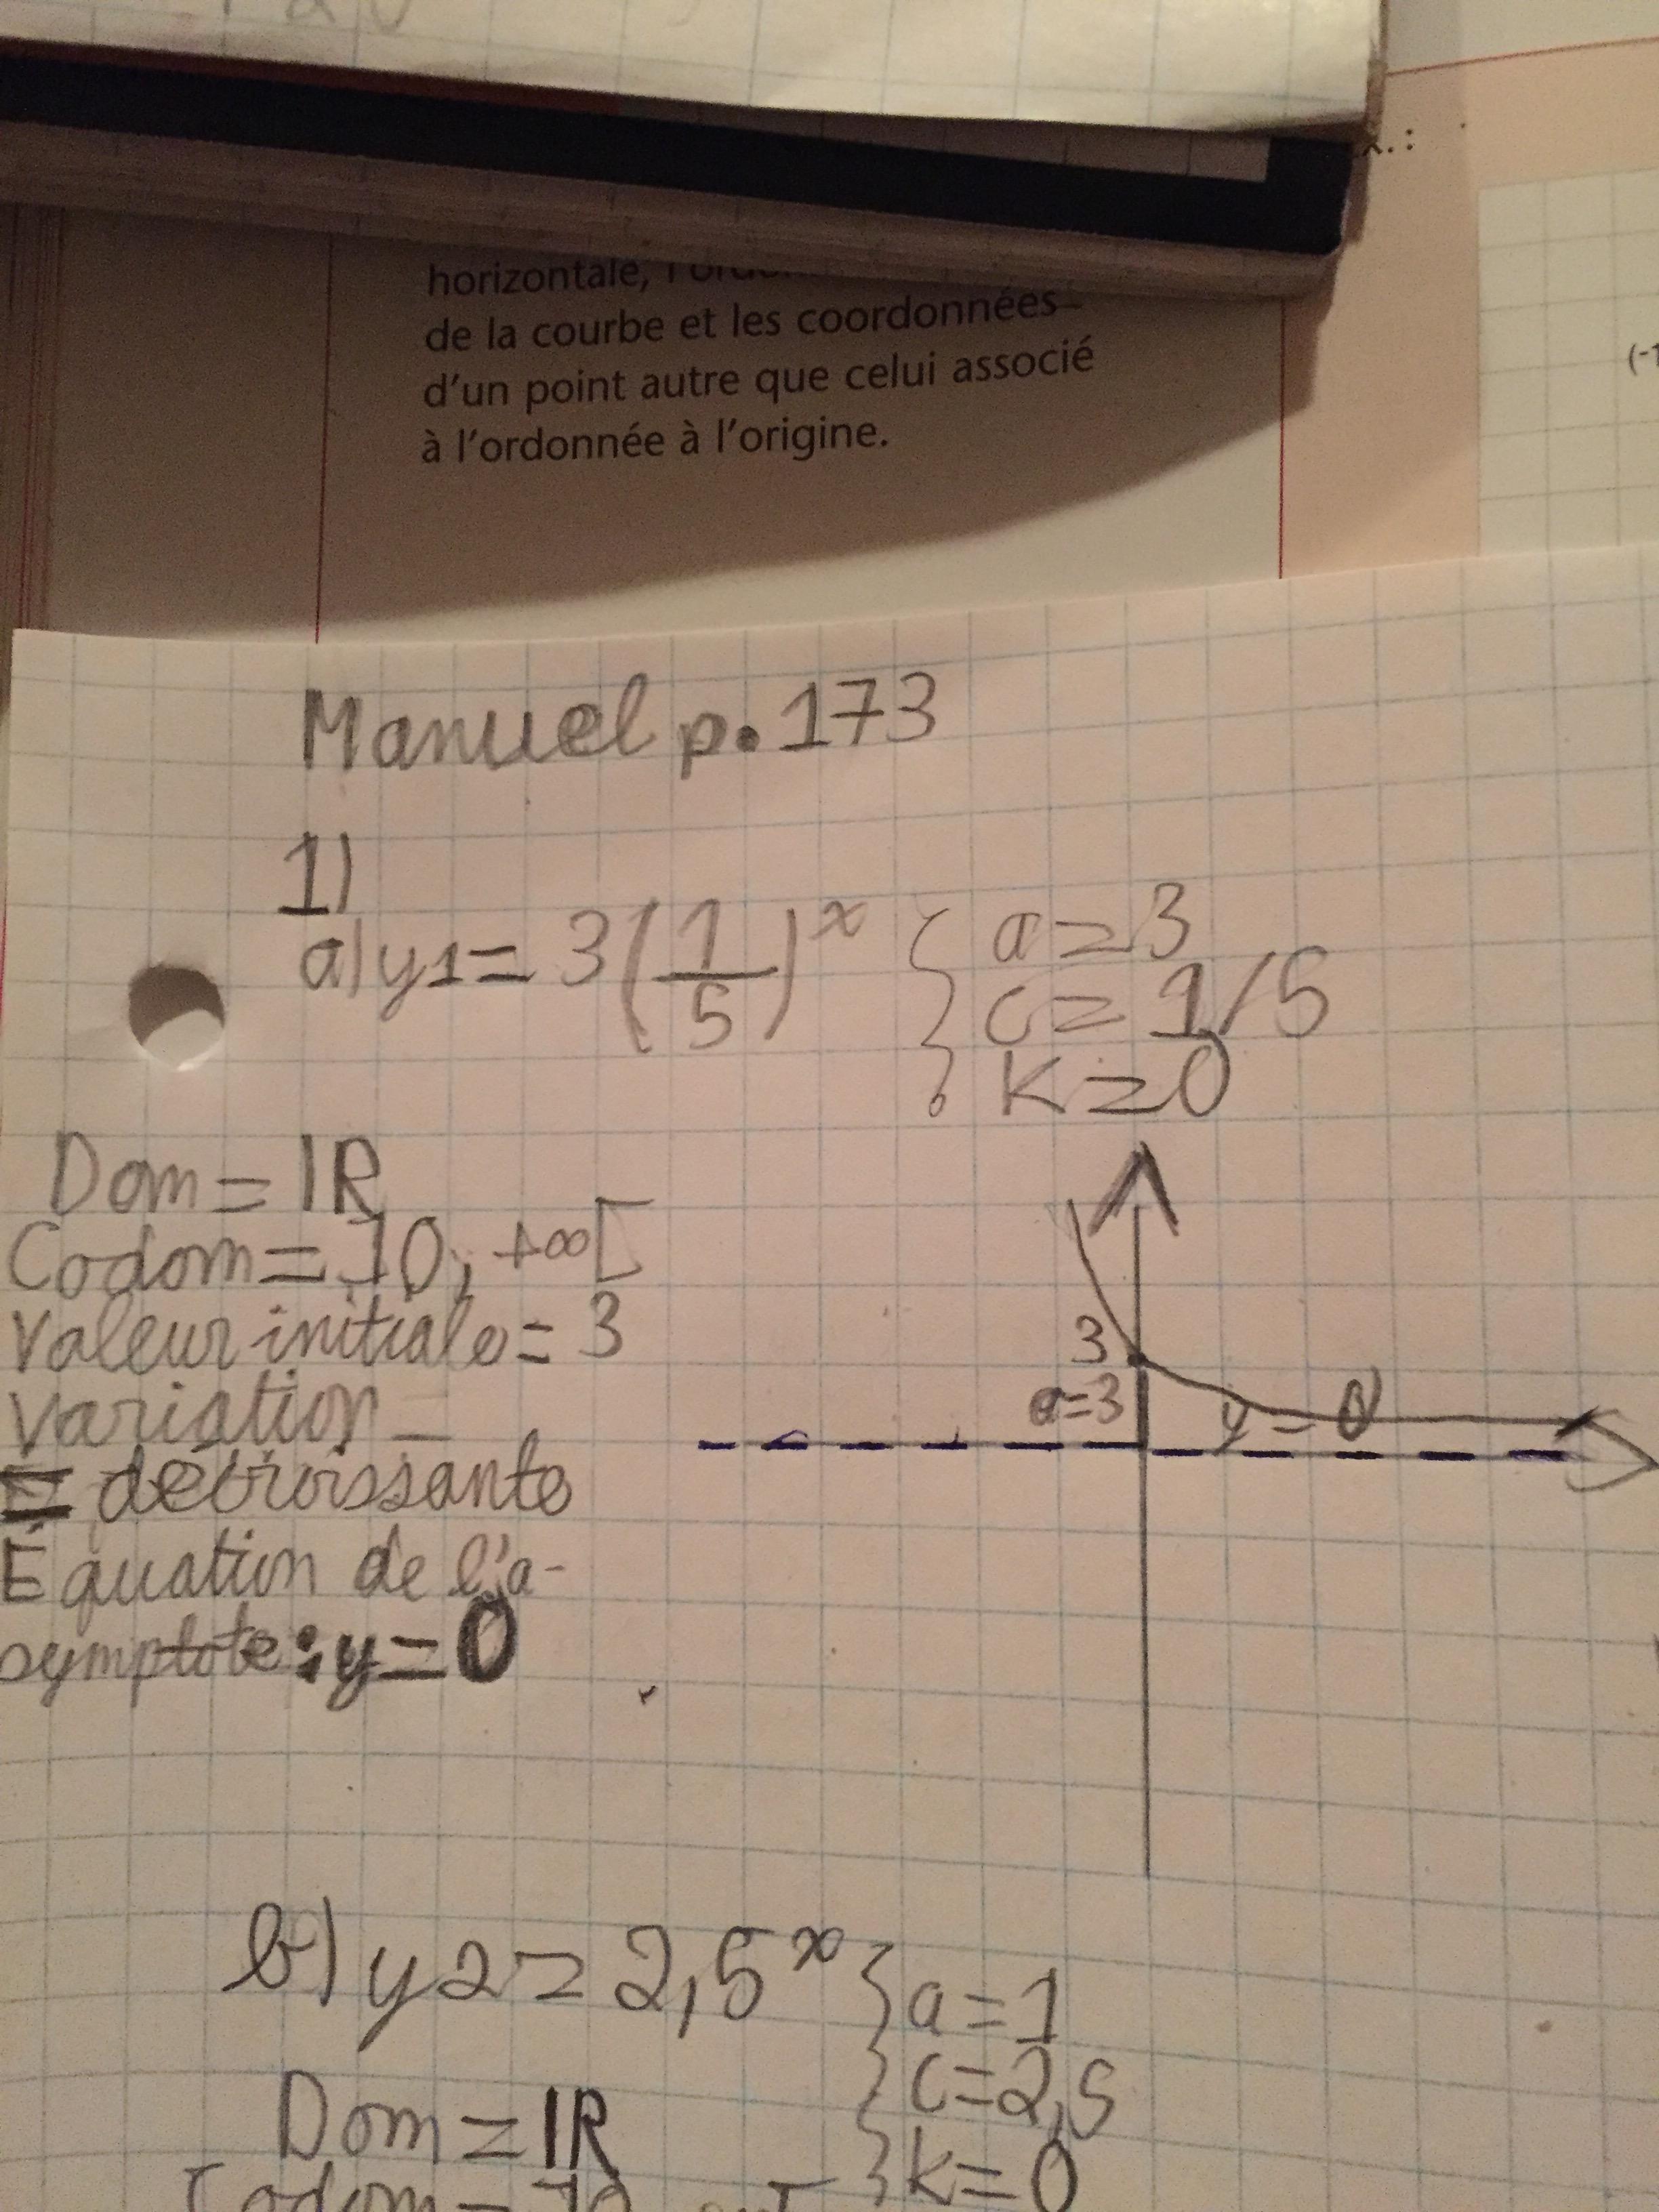 horizontale,
de la courbe et les coordonnées
d'un point autre que celui associé
à l'ordonnée à l'origine.
(-1
Manuel p. 173
1)
a) y1 = 3(1/5)^x { a = 3
c = 1/5
k = 0
Dom = IR
Codom = ]0, +∞[
Valeur initiale = 3
Variation
= décroissante
Équation de l'a-
symptote : y = 0
3
a=3
y = 0
b) y2 = 2,5^x { a = 1
c = 2,5
k = 0
Dom = IR
Codom =